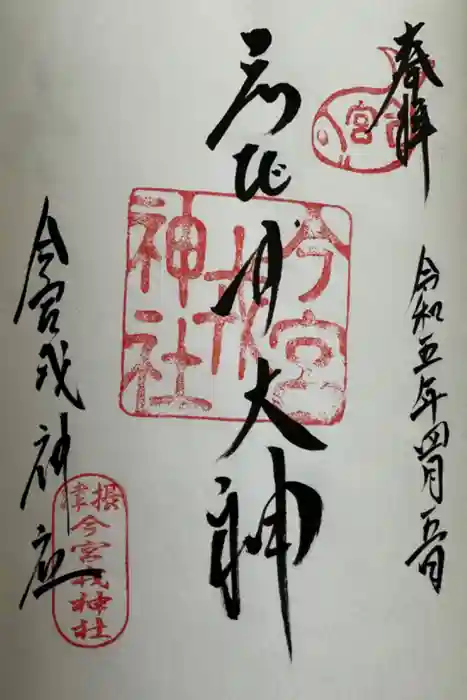 奉拝
今宮
令和五年四月五日
ゑびす大神
今宮戎神社
今宮戎神社
摂津
今宮戎神社